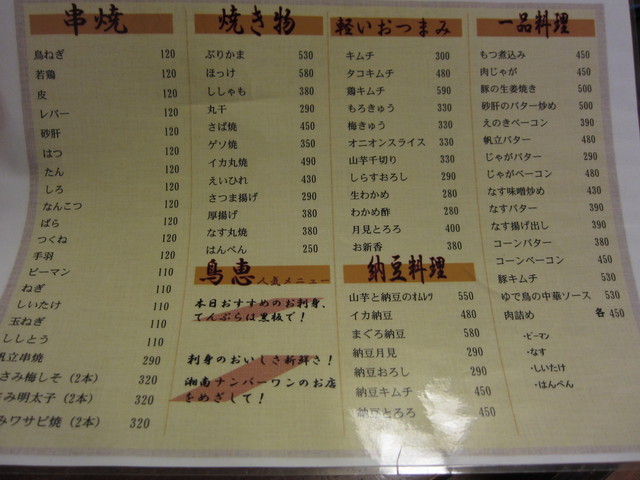 串焼
鳥ねぎ 120
若鶏 120
皮 120
レバー 120
砂肝 120
はつ 120
たん 120
しろ 120
なんこつ 120
ばら 120
つくね 120
手羽 120
ピーマン 110
ねぎ 110
しいたけ 110
玉ねぎ 110
ししとう 110
帆立串焼 290
さみ梅しそ（2本） 320
み明太子（2本） 320
みワサビ焼（2本） 320
焼き物
ぶりかま 530
ほっけ 580
ししゃも 380
丸干 290
さば焼 450
ゲソ焼 350
イカ丸焼 490
えいひれ 430
さつま揚げ 290
厚揚げ 380
なす丸焼 380
はんぺん 250
鳥恵 人気メニュー
本日おすすめのお刺身、
てんぷらは黒板で！
刺身のおいしさ新鮮さ！
湘南ナンバーワンのお店
をめざして！
軽いおつまみ
キムチ 300
タコキムチ 480
鶏キムチ 590
もろきゅう 330
梅きゅう 330
オニオンスライス 330
山芋千切り 380
しらすおろし 290
生わかめ 280
わかめ酢 280
月見とろろ 400
お新香 380
納豆料理
山芋と納豆のオムレツ 550
イカ納豆 480
まぐろ納豆 580
納豆月見 390
納豆おろし 290
納豆キムチ 450
納豆とろろ 450
一品料理
もつ煮込み 450
肉じゃが 450
豚の生姜焼き 500
砂肝のバター炒め 500
えのきベーコン 390
帆立バター 480
じゃがバター 290
じゃがベーコン 480
なす味噌炒め 430
なすバター 390
なす揚げ出し 390
コーンバター 380
コーンベーコン 450
豚キムチ 530
ゆで鳥の中華ソース 530
肉詰め 各450
・ピーマン
・なす
・しいたけ
・はんぺん